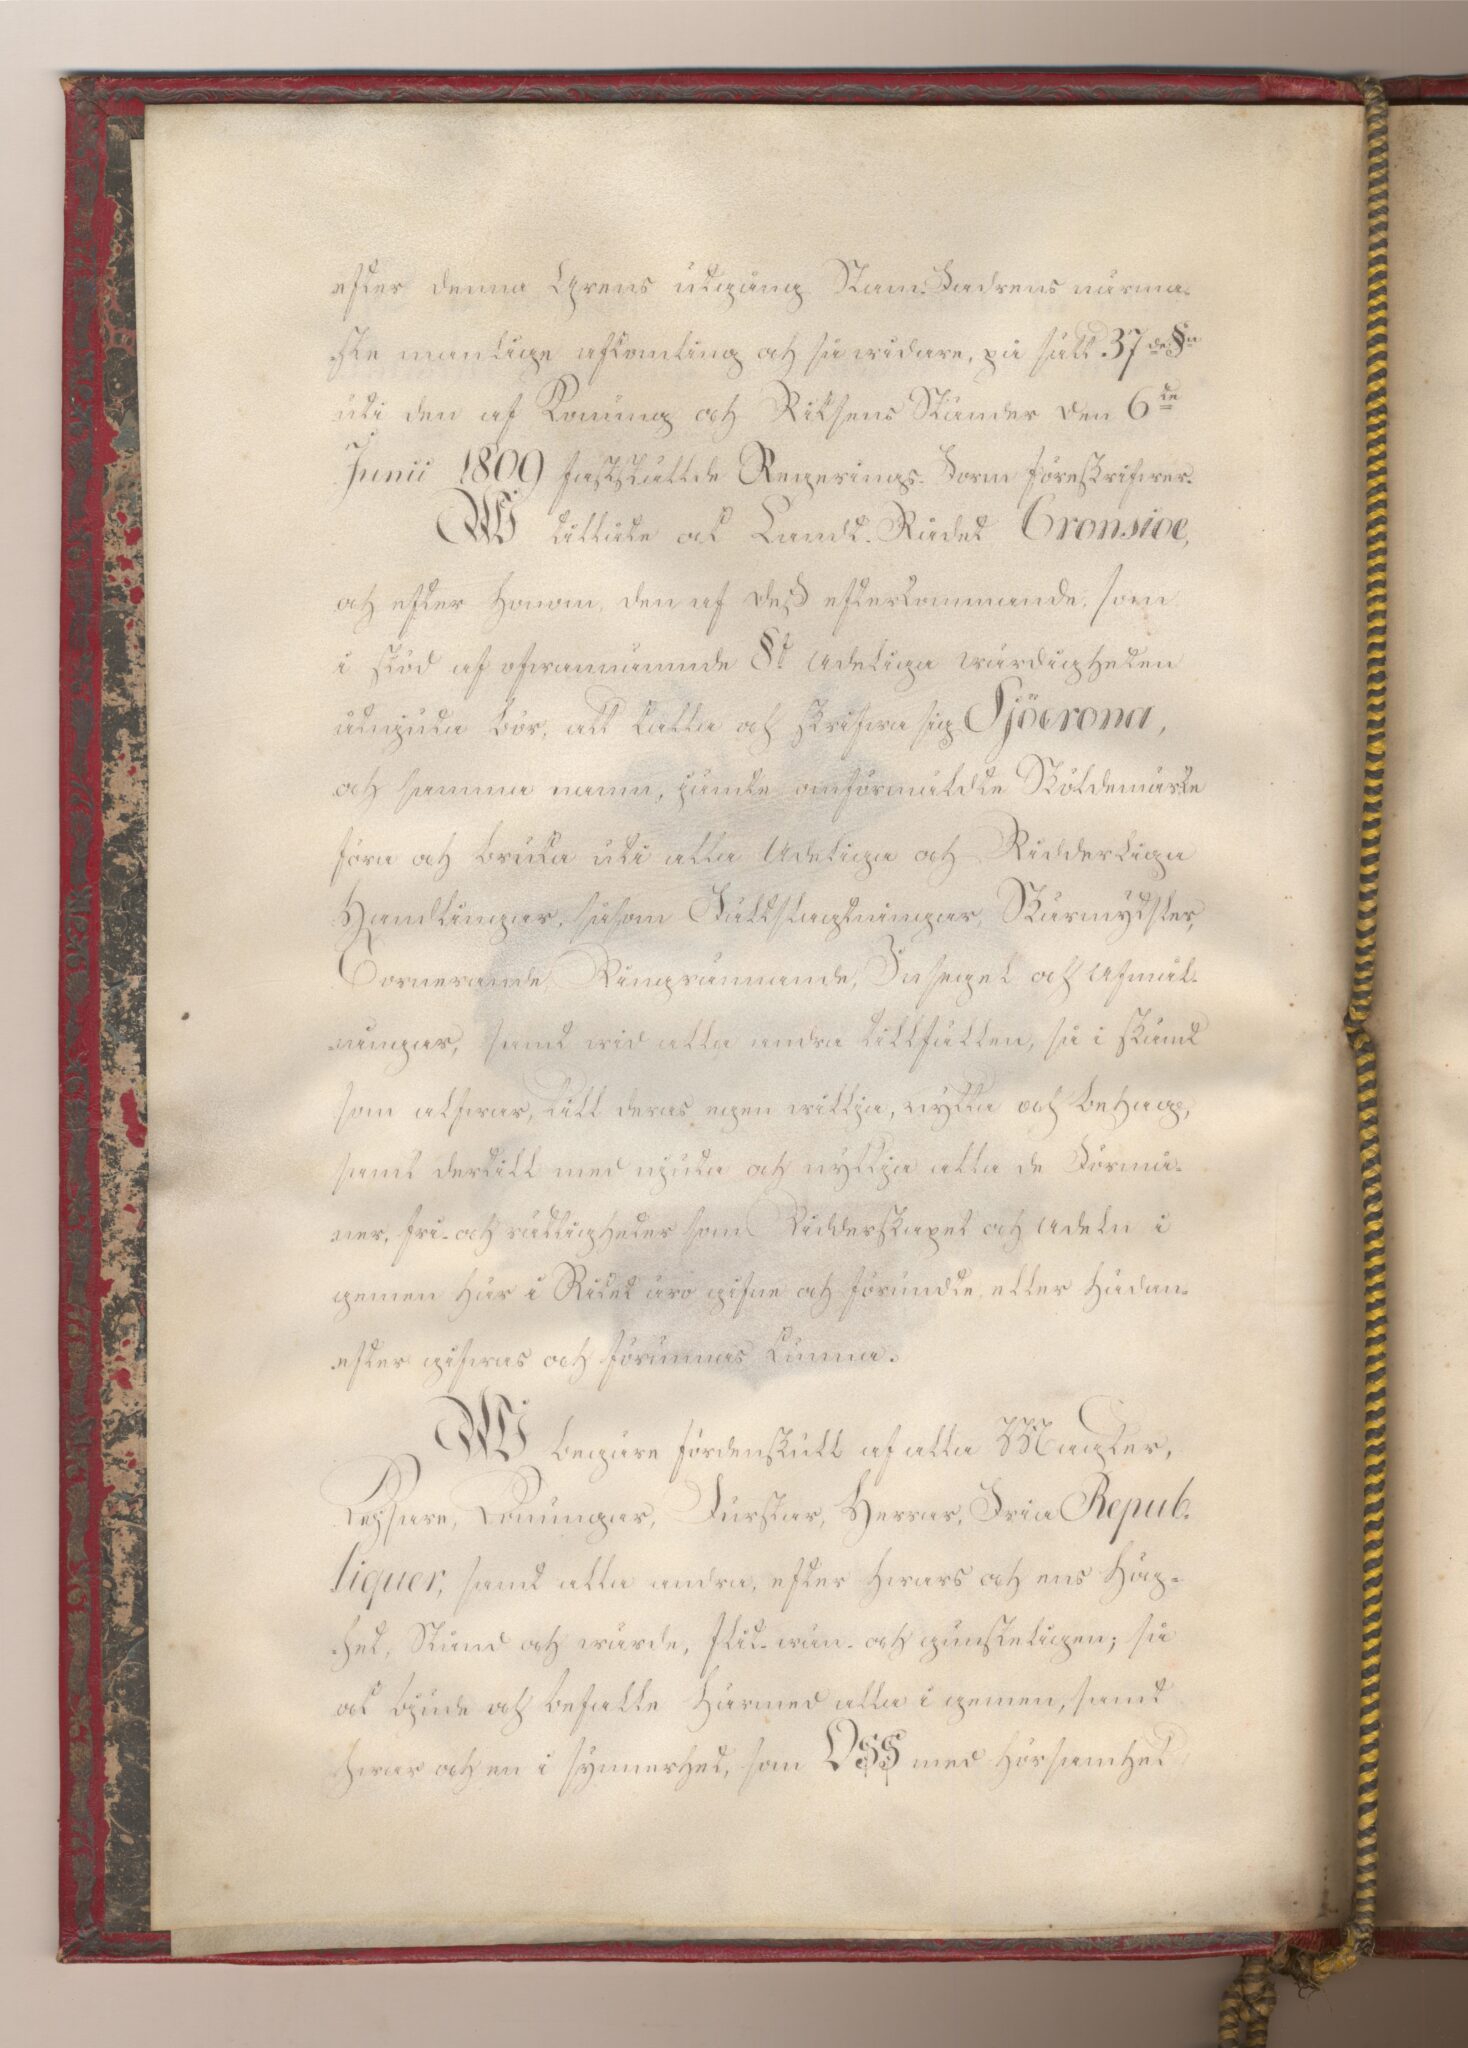 efter denna Grens utgång Stam-Fadrens närma-
ste manlige afkomling och så widare, på sätt 37de §n
uti den af Konung och Riksens Ständer den 6te
Junii 1809 fastställde Regerings-Form föreskrifwer.
Wi tillåte ock Landt-Rådet Cronsioe,
och efter honom, den af deß efterkommande, som
i stöd af ofwannämnde §t Adeliga wärdigheten
åtnjuta bör, att kalla och skrifwa sig Sjöcrona,
och samma namn, jämte omförmäldte Sköldemärke
föra och bruka uti alla Adeliga och Ridderliga
Handlingar, såsom Fältslagtningar, Skärmydsler,
Tornerande, Ringrännande, Insegel och Afmål-
ningar, samt wid alla andra tillfällen, så i skämt
som alfwar, till deras egen willja, nytta och behag,
samt dertill med njuta och nyttja alla de Förmå-
ner, fri- och rättigheter som Ridderskapet och Adeln i
gemen här i Riket äro gifne och förundte eller hädan-
efter gifwas och förunnas kunna.
Wi begäre fördenskull af alla Magter,
Keysare, Konungar, Furstar, Herrar, Fria Repub-
liquer, samt alla andra, efter hwars och ens Hög-
het, Stånd och wärde, flit- wän- och gunsteligen; så
ock bjude och befalle Härmed alla i gemen, samt
hwar och en i synnerhet, som OSS med hörsamhet